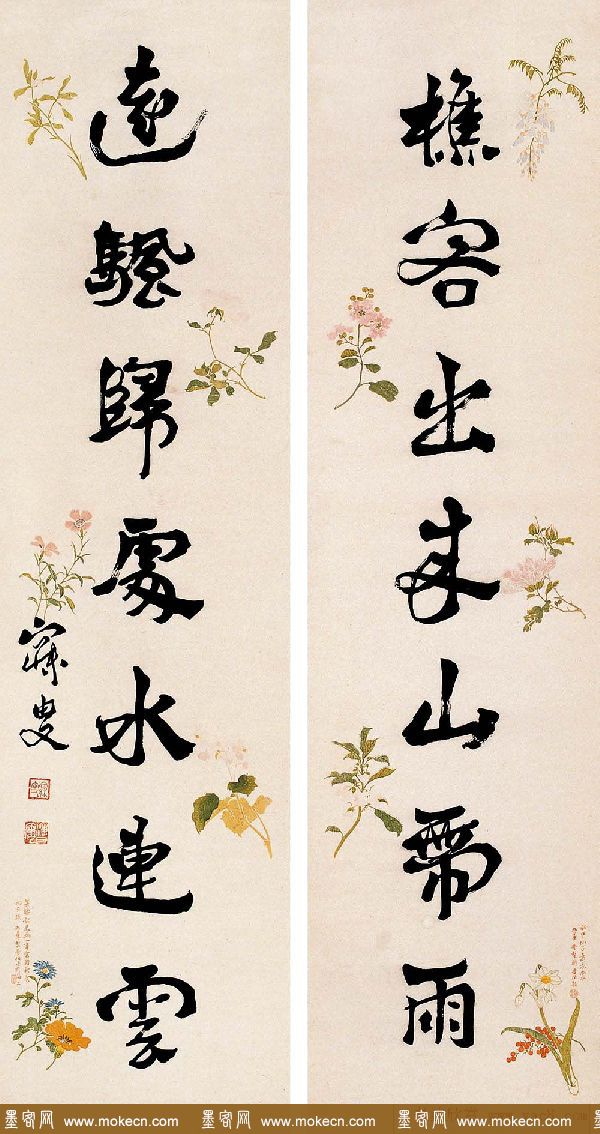 樵客出來山帶雨
遠颿歸處水連雲
寐叟
墨客网 www.mokecn.com 墨客网 www.mokecn.com 墨客网 www.mokecn.com 墨客网